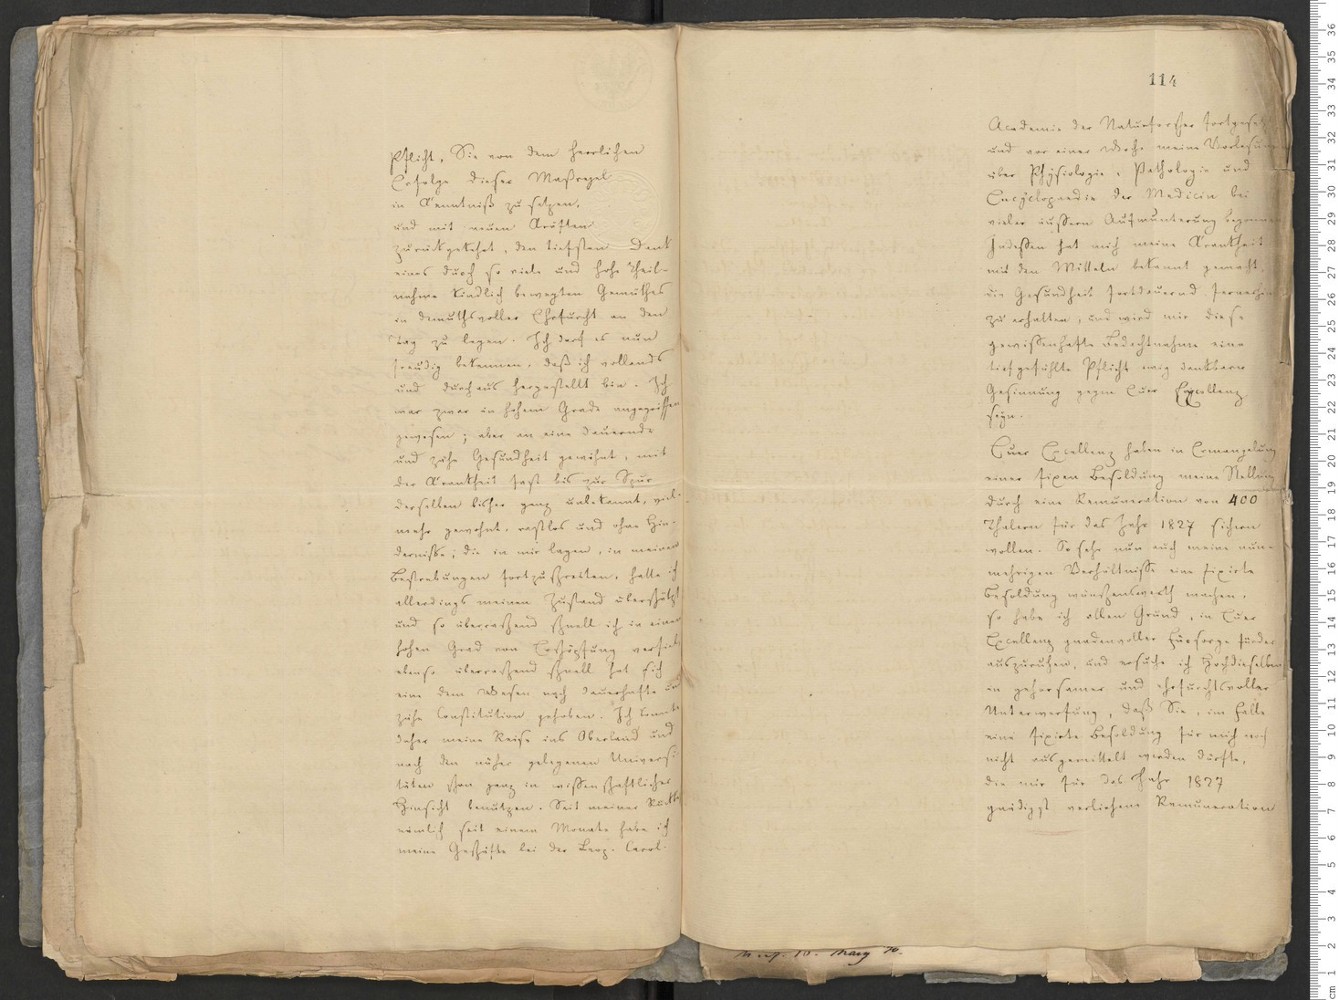 Pflicht, Sie von dem herrlichen
Erfolge dieser Maßregel
in Kenntniß zu setzen,
und mit neuen Kräften
zurückgekehrt, den tiefsten Dank
eines durch so viele und hohe Theil-
nahme kindlich bewegten Gemüthes
in demuthsvoller Ehrfurcht an den
Tag zu legen. Ich darf es nun
freudig bekennen, daß ich vollends
und durchaus hergestellt bin. Ich
war zwar in hohem Grade angegriffen
gewesen; aber an eine dauernde
und zähe Gesundheit gewöhnt, mit
der Krankheit fast bis zur Spur
derselben bisher ganz unbekannt, viel-
mehr gewohnt, rastlos und ohne Hin-
dernisse, die in mir lagen, in meinen
Bestrebungen fortzuschreiten, hatte ich
allerdings meinen Zustand überschätzt
und so überraschend schnell ich in einen
hohen Grad von Erschöpfung verfiel
ebenso überraschend schnell hat sich
eine dem Wesen nach dauerhafte und
zähe Constitution gehoben. Ich konnte
daher meine Reise ins Oberland und
nach den näher gelegenen Universi-
täten schon ganz in wissenschaftlicher
Hinsicht benutzen. Seit meiner
nämlich seit einem Monate habe ich
meine Geschäfte bei der Leop. Carol.
114
Academie der Naturforscher
und vor einer Woche meine
über Physiologie, Pathologie und
Encyclopaedie der Medicin bei
vieler äussern Aufmunterung begonnen
Indessen hat mich meine Krankheit
mit den Mitteln bekannt gemacht,
die Gesundheit fortdauernd
zu erhalten, und wird mir diese
gewissenhafte Bedachtnahme eine
tiefgefühlte Pflicht ewig dankbarer
Gesinnung gegen Euer Excellenz
seyn.
Euer Excellenz haben in Ermangelung
einer fixen Besoldung meine Stellung
durch eine Remuneration von 400
Thalern für das Jahr 1827 sichern
wollen. So sehr nun auch meine nun-
mehrigen Verhältnisse eine fixirte
Besoldung wünschenswerth machen,
so habe ich allen Grund, in Euer
Excellenz gnadenvoller Fürsorge
auszuruhen, und ersuche ich Hochdieselben
in gehorsamer und ehrfurchtsvoller
Unterwerfung, daß Sie, im Falle
eine fixirte Besoldung für mich noch
nicht ausgemittelt werden dürfte,
die mir für das Jahr 1827
gnädigst verliehene Remuneration